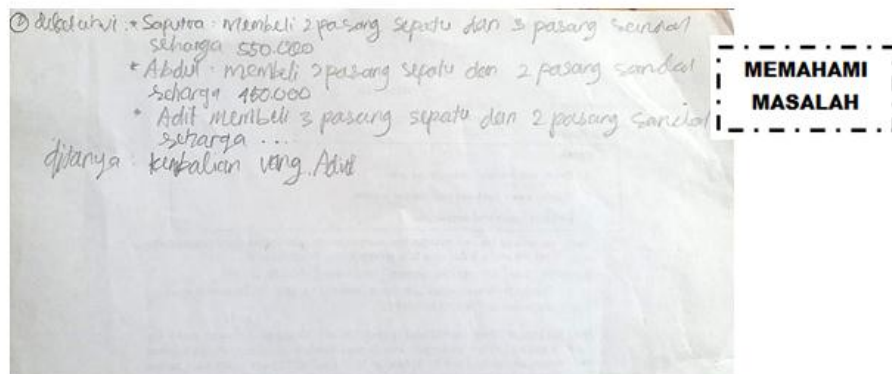 ② diketahui : * Saputra : membeli 2 pasang sepatu dan 3 pasang sandal
seharga 550.000
* Abdul : membeli 2 pasang sepatu dan 2 pasang sandal
seharga 450.000
* Adit membeli 3 pasang sepatu dan 2 pasang sandal
seharga ....
ditanya : kembalian uang Adit
MEMAHAMI
MASALAH